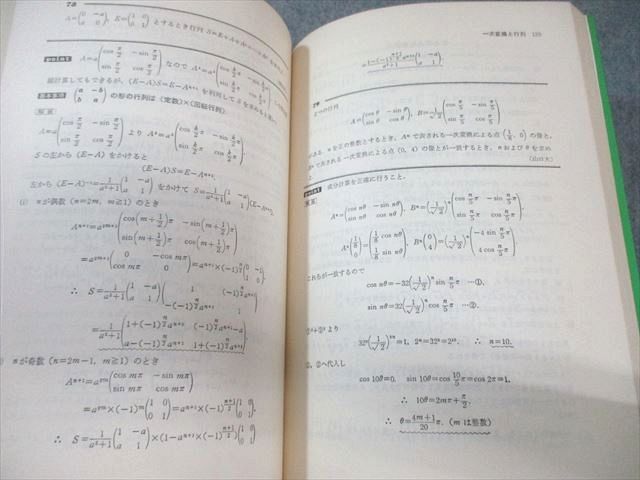 73
A=(0 -a
a 0), E=(1 0
0 1) とするとき行列 S=E+A+A²+
point A=a(cos π/2 -sin π/2
sin π/2 cos π/2) なので Aᵏ=aᵏ(cos k/2 π -sin k/2 π
sin k/2 π cos k/2 π)
(E-A)S=E-Aⁿ⁺¹ を利用して S を求める
基本事項 (a -b
b a) の形の行列は (定数)×(回転行列)
解説
A=a(cos π/2 -sin π/2
sin π/2 cos π/2) より Aᵏ=aᵏ(cos k/2 π -sin k/2 π
sin k/2 π cos k/2 π)
S の左から (E-A) をかけると
(E-A)S=E-Aⁿ⁺¹
左から (E-A)⁻¹=1/(a²+1)(1 -a
a 1) をかけて S=1/(a²+1)(1 -a
a 1)(E-Aⁿ⁺¹)
(i) n が偶数 (n=2m, m≧1) のとき
Aⁿ⁺¹=aⁿ⁺¹(cos(m+1/2)π -sin(m+1/2)π
sin(m+1/2)π cos(m+1/2)π)
=a²ᵐ⁺¹(0 -cos mπ
cos mπ 0)=aⁿ⁺¹×(-1)^(n/2)(0 -1
1 0)
∴ S=1/(a²+1)(1 -a
a 1)(1 (-1)^(n/2)aⁿ⁺¹
-(-1)^(n/2)aⁿ⁺¹ 1)
=1/(a²+1)(1+(-1)^(n/2)aⁿ⁺² (-1)^(n/2)aⁿ⁺¹-a
a-(-1)^(n/2)aⁿ⁺¹ 1+(-1)^(n/2)aⁿ⁺²)
) n が奇数 (n=2m-1, m≧1) のとき
Aⁿ⁺¹=a²ᵐ(cos mπ -sin mπ
sin mπ cos mπ)
=a²ᵐ×(-1)ᵐ(1 0
0 1)=aⁿ⁺¹×(-1)^((n+1)/2)(1 0
0 1).
∴ S=1/(a²+1)(1 -a
a 1)×(1-aⁿ⁺¹×(-1)^((n+1)/2)(1 0
0 1)
一次変換と行列 125
=(1-(-1)^((n+1)/2)aⁿ⁺¹)/(a²+1)(1 -a
a 1).
つの行列
A=(cos θ -sin θ
sin θ cos θ), B=1/√2(cos π/5 -sin π/5
sin π/5 cos π/5)
がある. n を正の整数とするとき, Aⁿ で表される一次変換による点 (1/8, 0) の像と,
Bⁿ で表される一次変換による点 (0, 4) の像とが一致するとき, n および θ を定め
よ. (山口大)
point 成分計算を正確に行うこと.
解説
Aⁿ=(cos nθ -sin nθ
sin nθ cos nθ), Bⁿ=(1/√2)ⁿ(cos n/5 π -sin n/5 π
sin n/5 π cos n/5 π)
Aⁿ(1/8
0)=(1/8 cos nθ
1/8 sin nθ), Bⁿ(0
4)=(1/√2)ⁿ(-4 sin n/5 π
4 cos n/5 π)
これらが一致するので
cos nθ=-32(1/√2)ⁿ sin n/5 π …①,
sin nθ=32(1/√2)ⁿ cos n/5 π …②.
①²+②² より
32²(1/√2)²ⁿ=1, 2ⁿ=32²=2¹⁰. ∴ n=10.
①, ②へ代入し
cos 10θ=0. sin 10θ=cos 10/5 π=cos 2π=1.
∴ 10θ=2mπ+π/2.
∴ θ=(4m+1)/20 π. (m は整数)